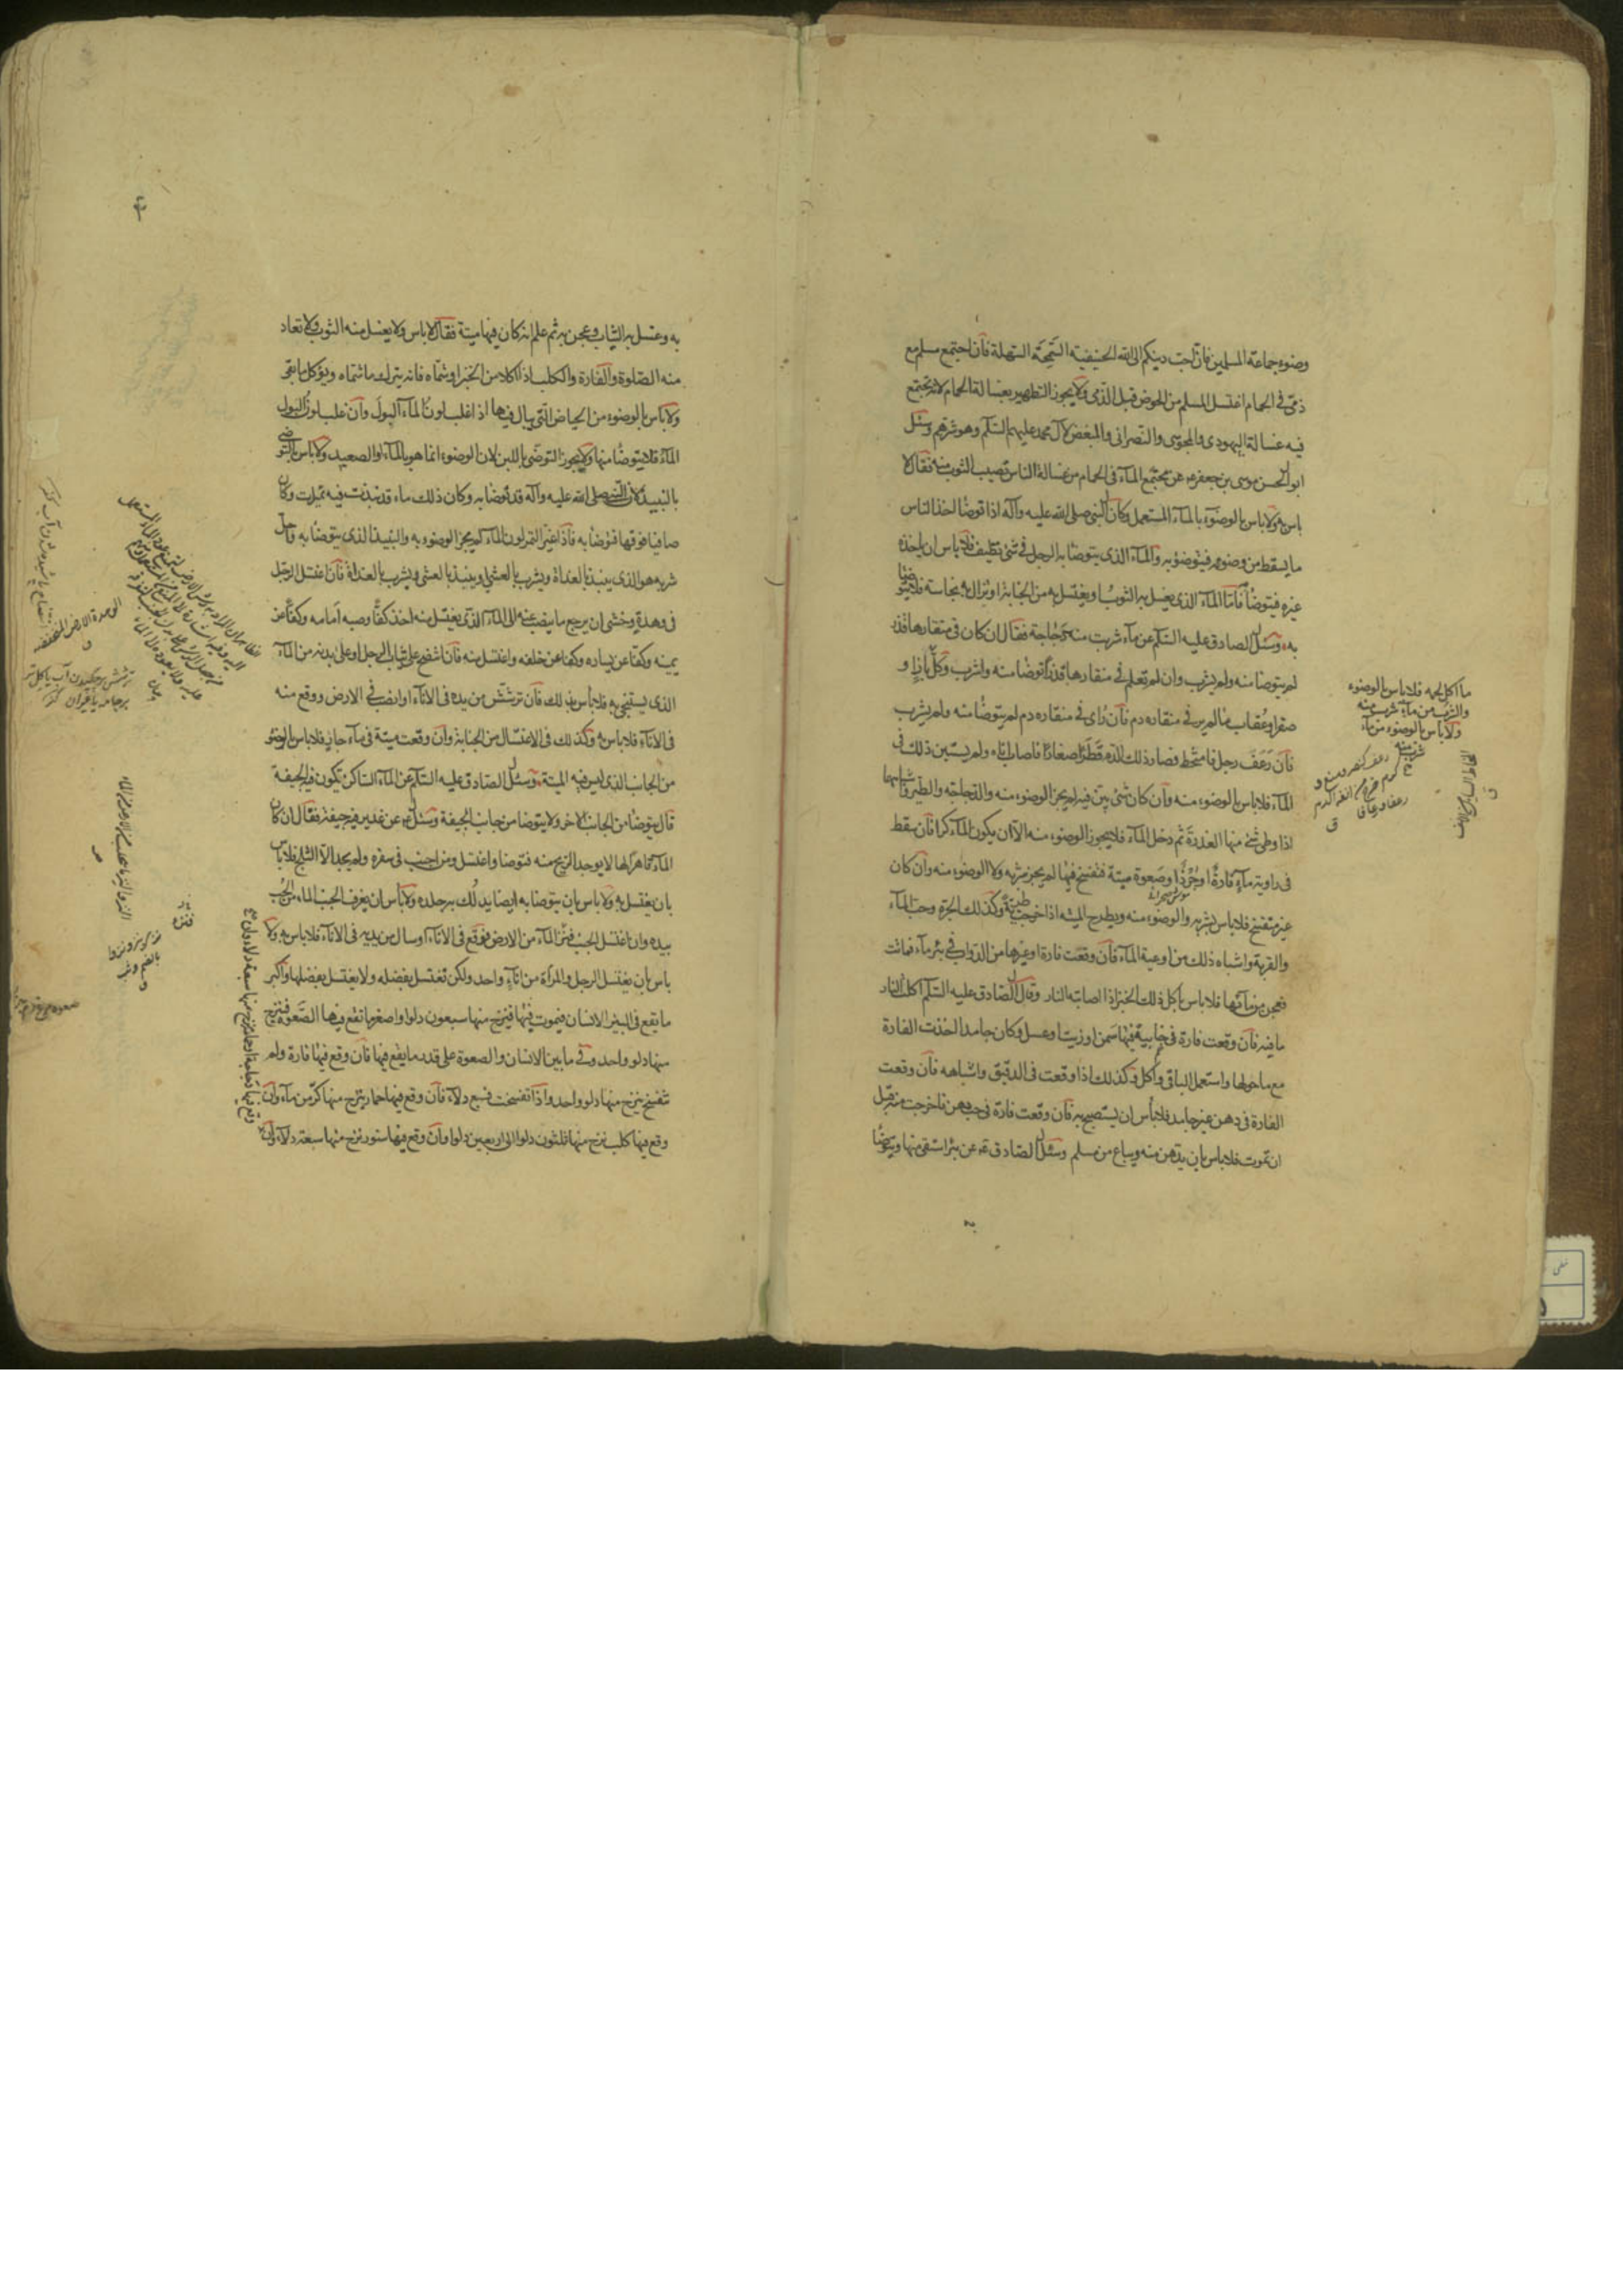 وضوء جماعة المسلمين فان احب دينكم الى الله الحنيفية السمحة السهلة فان اجتمع مسلم مع
ذمى فى الحمام اغتسل المسلم من الحوض قبل الذمى ولا يجوز التطهير بغسالة الحمام لانه يجتمع
فيه غسالة اليهودى والمجوسى والنصرانى والمبغض لآل محمد عليهم السلم وهو شرهم وسئل
ابو الحسن موسى بن جعفر ع عن مجتمع الماء فى الحمام من غسالة الناس تصيب الثوب منه فقال لا
باس به ولا باس بالوضوء بالماء المستعمل وكان النبى صلى الله عليه وآله اذا توضا اخذ الناس
ما يسقط من وضوءه فيتوضؤ به والماء الذى يتوضا به الرجل فى شئ نظيف فلا باس ان ياخذه
غيره فيتوضا به فاما الماء الذى يغسل به الثوب او يغتسل به من الجنابة او تزال به نجاسة فلا يتوضا
به وسئل الصادق عليه السلم عن ماء شربت منه دجاجة فقال ان كان فى منقارها قذر
لم يتوضا منه ولم يشرب وان لم تعلم فى منقارها قذرا توضا منه واشرب وكل باز او
صقر او عقاب ما لم ير فى منقاره دم فان راى فى منقاره دم لم يتوضا منه ولم يشرب
فان رعف رجل فامتخط فصار ذلك الدم قطرا صغارا فاصاب اناه ولم يستبن ذلك فى
الماء فلا باس بالوضوء منه وان كان شئ بين فيه لم يجز الوضوء منه والدجاجة والطير واشباهها
اذا وطى شئ منها العذرة ثم دخل الماء فلا يجوز الوضوء منه الا ان يكون الماء كرا فان سقط
فى راوية ماء فارة او جرذ او صعوة ميتة فتفسخ فيها لم يجز شربه ولا الوضوء منه وان كان
غير متفسخ فلا باس بشربه والوضوء منه ويطرح الميتة اذا خرجت طرية وكذلك الجرة وحب الماء
والقربة واشباه ذلك من اوعية الماء فان وقعت فارة او غيرها من الدواب فى بئر ماء فماتت
فعجن من مائها فلا باس باكل ذلك الخبز اذا اصابته النار وقال الصادق عليه السلم اكلت النار
ما فيه فان وقعت فارة فى خابية فيها سمن او زيت او عسل وكان جامدا اخذت الفارة
مع ما حولها واستعمل الباقى واكل وكذلك اذا وقعت فى الدقيق واشباهه فان وقعت
الفارة فى دهن غير جامد فلا باس ان يستصبح به فان وقعت فارة فى حب دهن فاخرجت منه قبل
ان تموت فلا باس بان يدهن منه ويباع من مسلم وسئل الصادق ع عن بئر استقى منها ويتوضا
ما اكل لحمه فلا باس بالوضوء
والشرب من ماء شرب منه
ولا باس بالوضوء من ماء
شرب منه
به وغسل به الثياب وعجن به ثم علم انه كان فيها ميتة فقال لا باس ولا يغسل منه الثوب ولا تعاد
منه الصلوة والفارة والكلب اذا اكلا من الخبز او شماه فانه يترك ما شماه ويؤكل ما بقى
ولا باس بالوضوء من الحياض التى يبال فيها اذا غلب لون الماء البول وان غلب لون البول
الماء فلا يتوضا منها ولا يجوز التوضى باللبن لان الوضوء انما هو بالماء او الصعيد ولا باس بالتوضى
بالنبيذ لان النبى صلى الله عليه وآله قد توضا به وكان ذلك ماء قد نبذت فيه تميرات وكان
صافيا فوقها فتوضا به فاذا غير التمر لون الماء لم يجز الوضوء به والنبيذ الذى يتوضا به واحل
شربه هو الذى ينبذ بالغداة ويشرب بالعشى او ينبذ بالعشى ويشرب بالغداة فان اغتسل الرجل
فى وهدة وخشى ان يرجع ما ينصب عنه الى الماء الذى يغتسل منه اخذ كفا وصبه امامه وكفا عن
يمينه وكفا عن يساره وكفا عن خلفه واغتسل منه فان انتضح على ثياب الرجل او على بدنه من الماء
الذى يستنجى به فلا باس بذلك فان ترشش من يده فى الاناء او انصب فى الارض ووقع منه
فى الاناء فلا باس به وكذلك فى الاغتسال من الجنابة وان وقعت ميتة فى ماء جار فلا باس بالوضوء
من الجانب الذى ليس فيه الميتة وسئل الصادق عليه السلم عن الماء الساكن تكون فيه الجيفة
قال يتوضا من الجانب الاخر ولا يتوضا من جانب الجيفة وسئل ع عن غدير فيه جيفة فقال ان كان
الماء قاهرا لها لا يوجد الريح منه فتوضا واغتسل ومن اجنب فى سفره ولم يجد الا الثلج فلا باس
بان يغتسل به ولا باس بان يتوضا به ايضا يدلك به جلده ولا باس ان يغرف الجنب الماء من الحب
بيده وان اغتسل الجنب فنزا الماء من الارض فوقع فى الاناء او سال من بدنه فى الاناء فلا باس به ولا
باس بان يغتسل الرجل والمراة من اناء واحد ولكن تغتسل بفضله ولا يغتسل بفضلها واكبر
ما يقع فى البئر الانسان فيموت فيها فينزح منها سبعون دلوا واصغر ما تقع فيها الصعوة فينزح
منها دلو واحد وفى ما بين الانسان والصعوة على قدر ما يقع فيها فان وقع فيها فارة ولم
تتفسخ ينزح منها دلو واحد واذا تفسخت فسبع دلاء فان وقع فيها حمار ينزح منها كر من ماء وان
وقع فيها كلب نزح منها ثلثون دلوا الى اربعين دلوا وان وقع فيها سنور نزح منها سبعة دلاء وان
وقع فيها دجاجة او حمامة نزح منها سبعة دلاء وان
الوهدة الارض المنخفضة